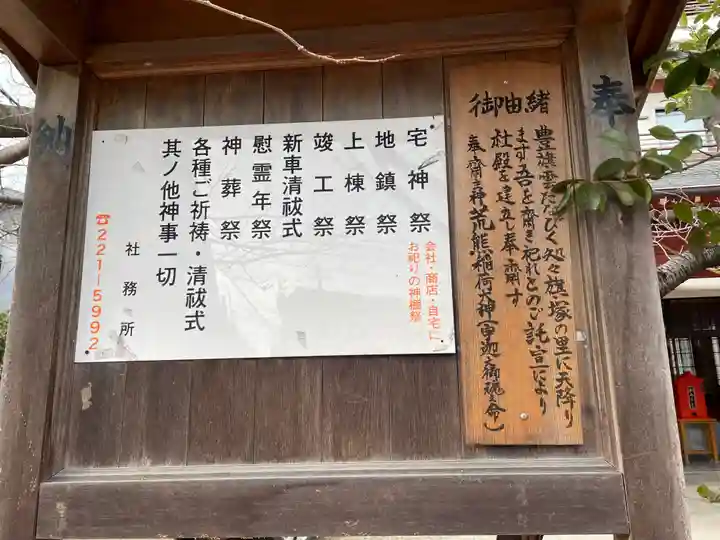 奉
御由緒
豊旗雲たなびく処々旗塚の里に天降り
ます吾を齋き祀れとのご託宣により
社殿を建立し奉齋す
奉齋主神荒熊稲荷大神(宇迦之御魂之命)
宅神祭
会社・商店・自宅に
お祀りの神棚祭
地鎮祭
上棟祭
竣工祭
新車清祓式
慰霊年祭
神葬祭
各種ご祈祷・清祓式
其ノ他神事一切
社務所
☎221-5992
納